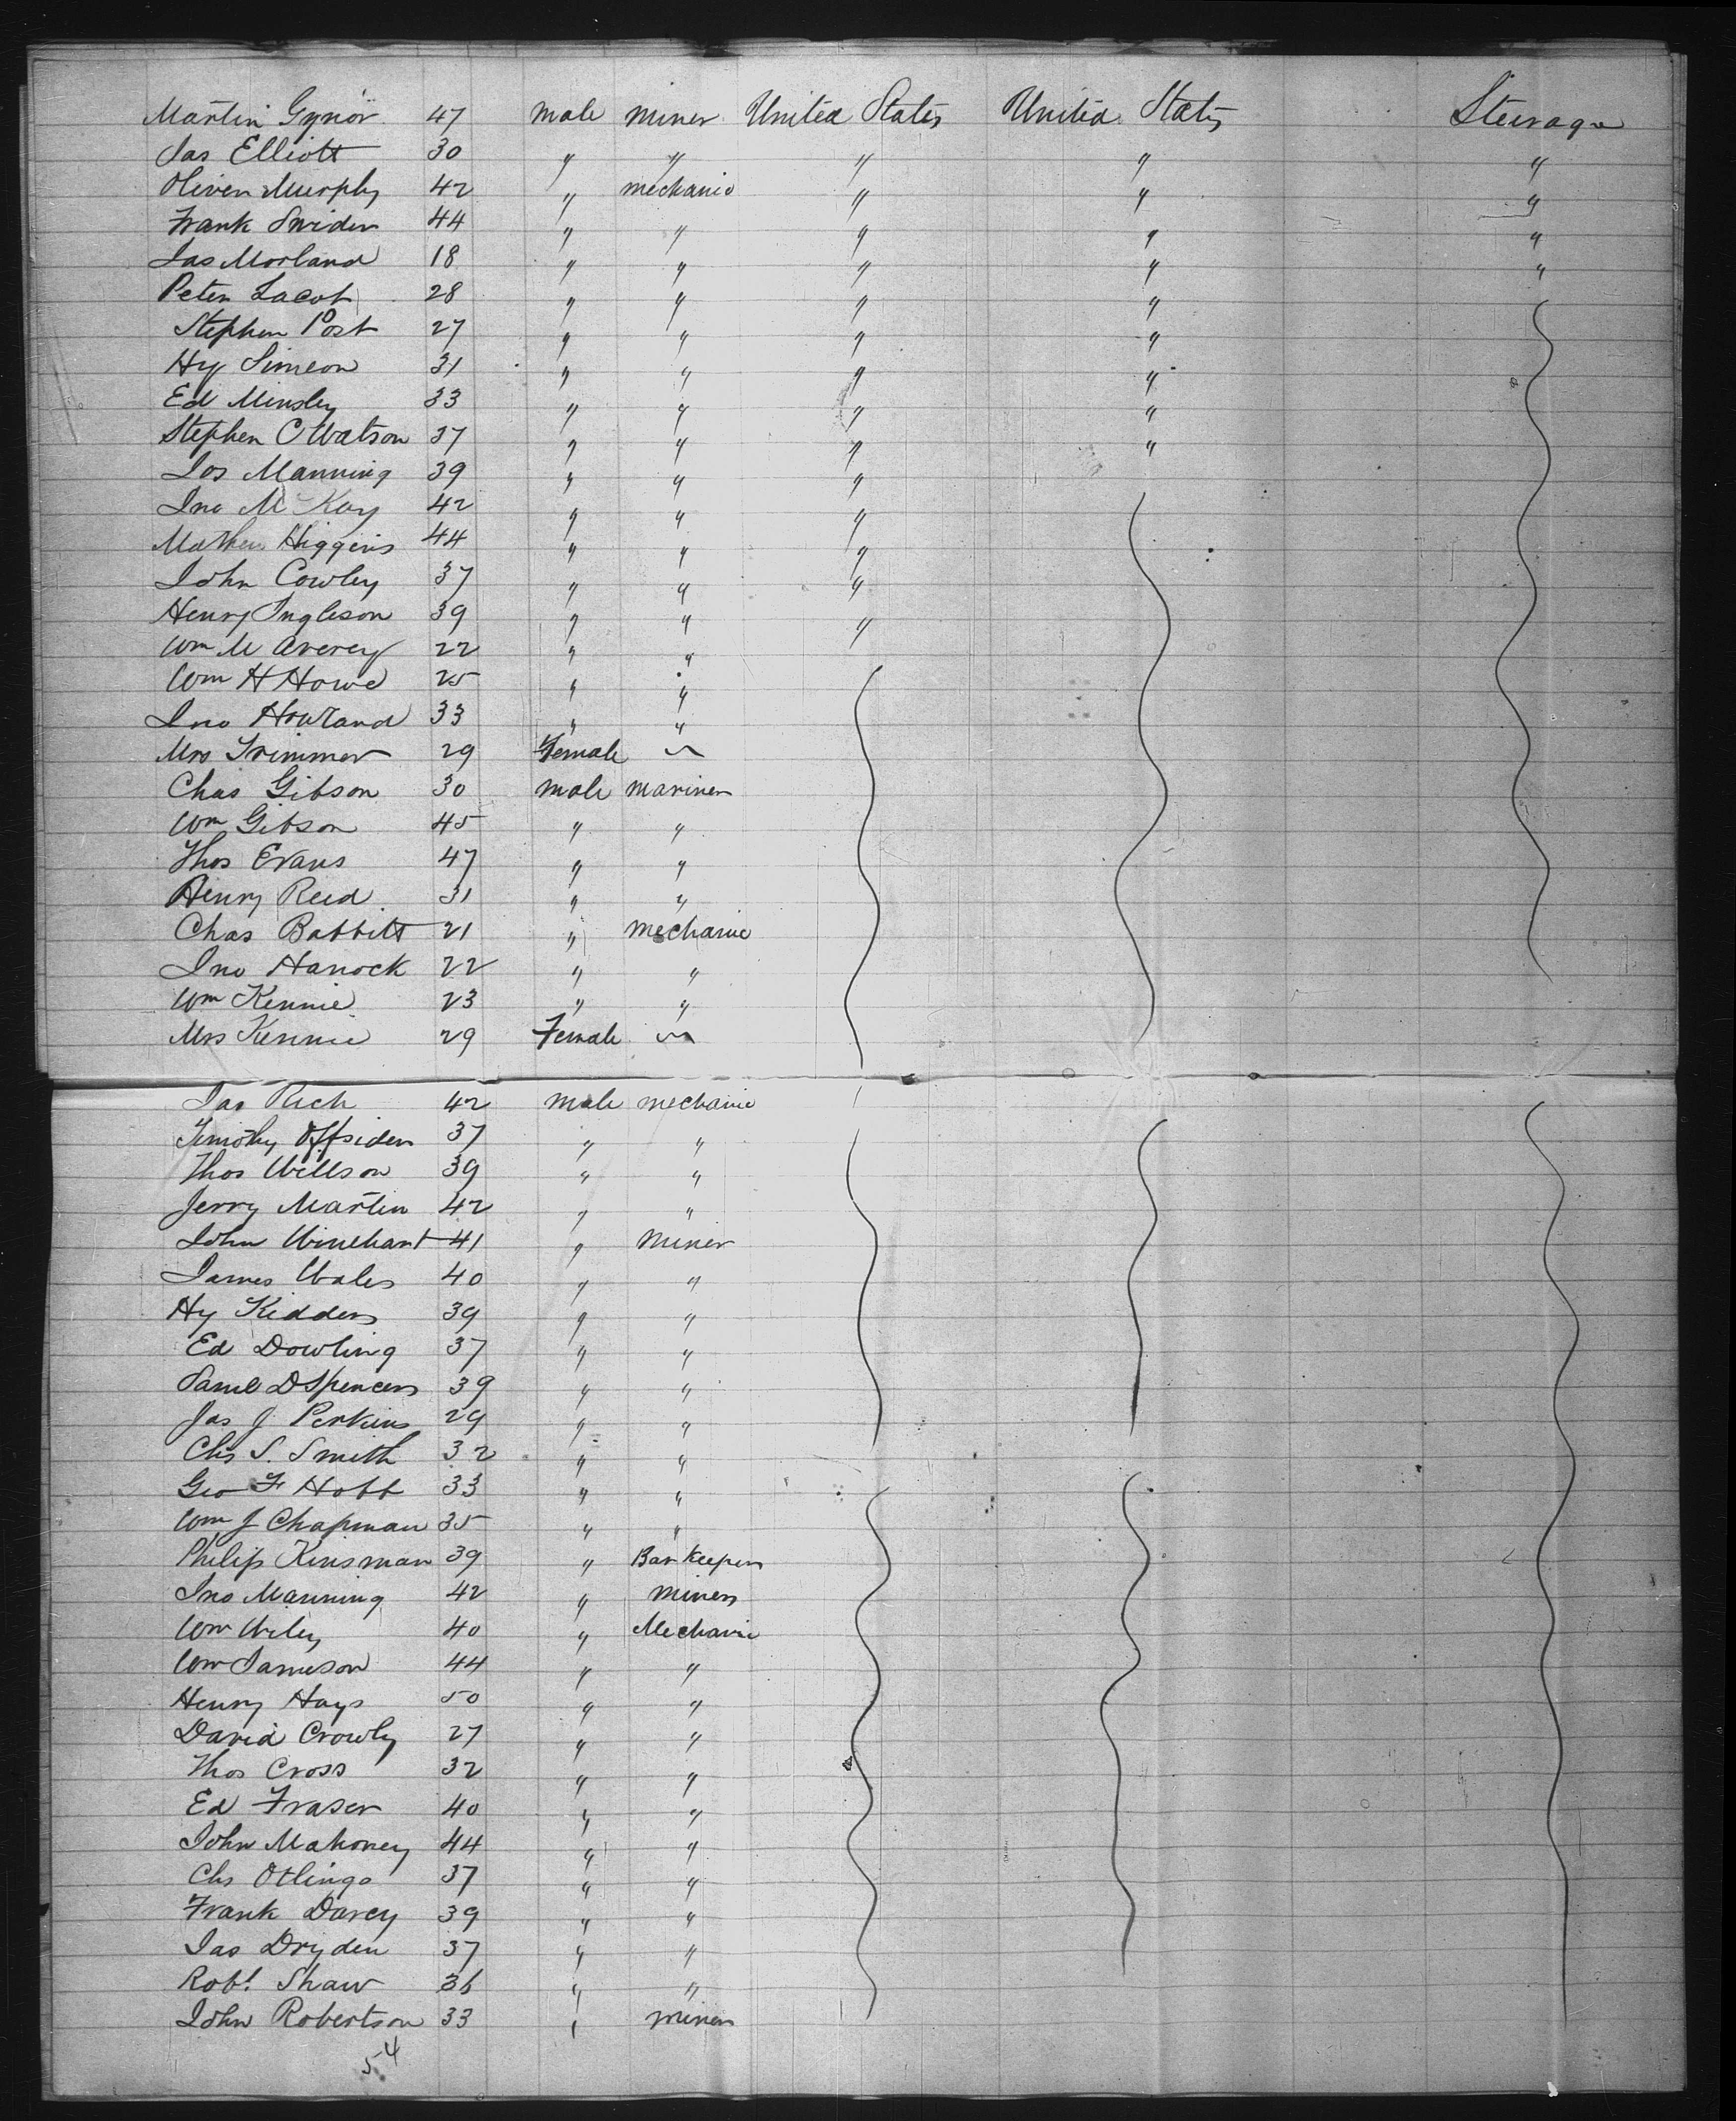 Martin Gynor 47 male miner United States United States Steerage
Jas Elliott 30 " " " " "
Oliver Murphy 42 " mechanic " " "
Frank Snider 44 " " " " "
Jas Morland 18 " " " " "
Peter Lacot 28 " " " "
Stephen Post 27 " " " "
Hy Simeon 31 " " " "
Ed Minsley 33 " " " "
Stephen C Watson 37 " " " "
Jos Manning 39 " " "
Jno McKay 42 " " "
Mathew Higgins 44 " " "
John Cowley 37 " " "
Henry Ingleson 39 " " "
Wm M Averey 22 " "
Wm H Howe 25 " "
Jno Howland 33 " "
Mrs Trimmer 29 Female
Chas Gibson 30 male mariner
Wm Gibson 45 " "
Thos Evans 47 " "
Henry Reed 31 " "
Chas Babbitt 21 " mechanic
Jno Hanock 22 " "
Wm Kennie 23 " "
Mrs Kennie 29 Female
Jas Rich 42 male mechanic
Timothy Offsider 37 " "
Thos Willson 39 " "
Jerry Martin 42 " "
John Winehart 41 " miner
James Wales 40 " "
Hy Kidders 39 " "
Ed Dowling 37 " "
Saml D Spencers 39 " "
Jas J Perkins 29 " "
Chs S. Smith 32 " "
Geo F Hobb 33 " "
Wm J Chapman 35 " "
Philip Kinsman 39 " Bar Keeper
Jno Manning 42 " miners
Wm Wiley 40 " Mechanic
Wm Jameson 44 " "
Henry Hays 50 " "
David Crowly 27 " "
Thos Cross 32 " "
Ed Fraser 40 " "
John Mahoney 44 " "
Chs Otlinga 37 " "
Frank Darcy 39 " "
Jas Dryden 37 " "
Robt Shaw 36 " "
John Robertson 33 " miner
54